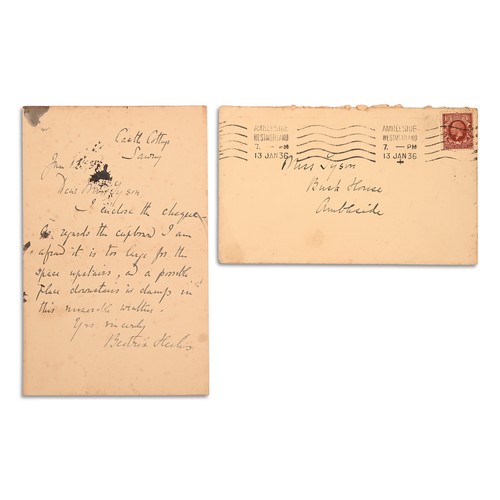 Castle Cottage
Sawrey
Jan
Dear Miss Tyson,
I enclose the cheque
as regards the cupboard I am
afraid it is too large for the
space upstairs, and a possible
place downstairs is damp in
this miserable weather.
Yrs sincerely
Beatrix Heelis
AMBLESIDE
WESTMORLAND
7. – PM
13 JAN 36
AMBLESIDE
WESTMORLAND
7. – PM
13 JAN 36
Miss Tyson
House
Ambleside